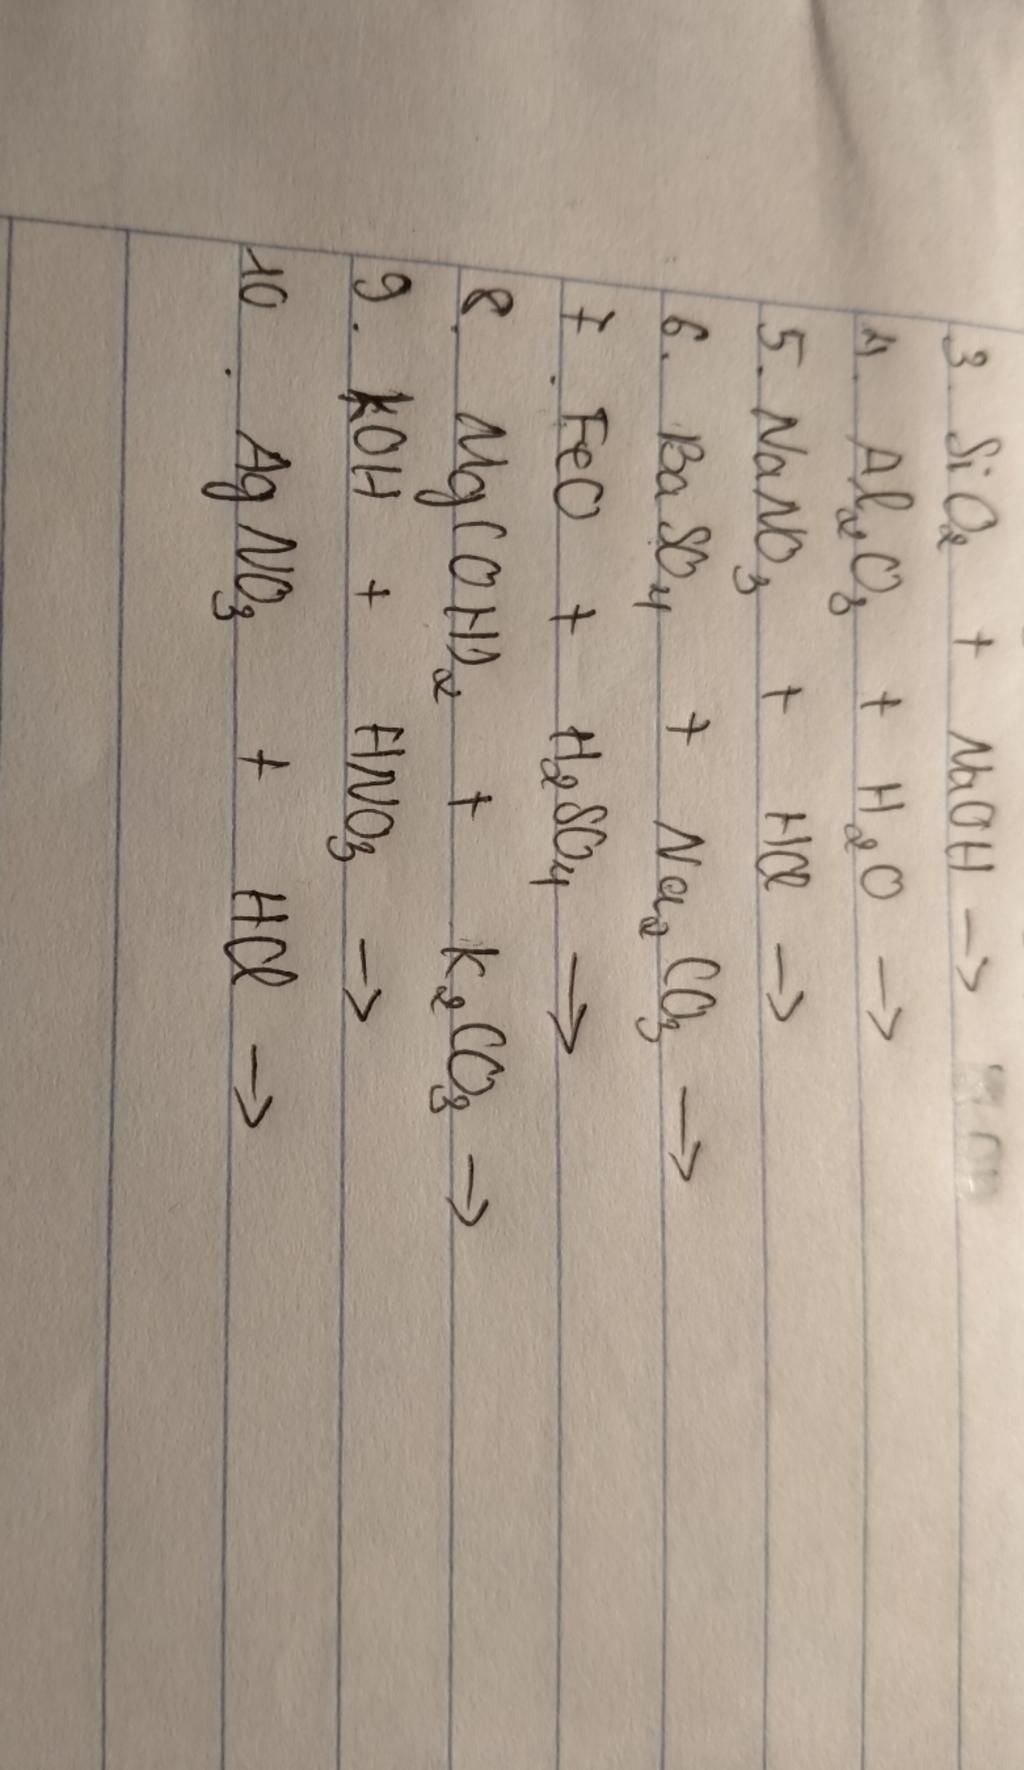 3. SiO₂ + NaOH →
4. Al₂O₃ + H₂O →
5. NaNO₃ + HCl →
6. BaSO₄ + Na₂CO₃ →
7. FeO + H₂SO₄ →
8. Mg(OH)₂ + K₂CO₃ →
9. KOH + HNO₃ →
10. AgNO₃ + HCl →